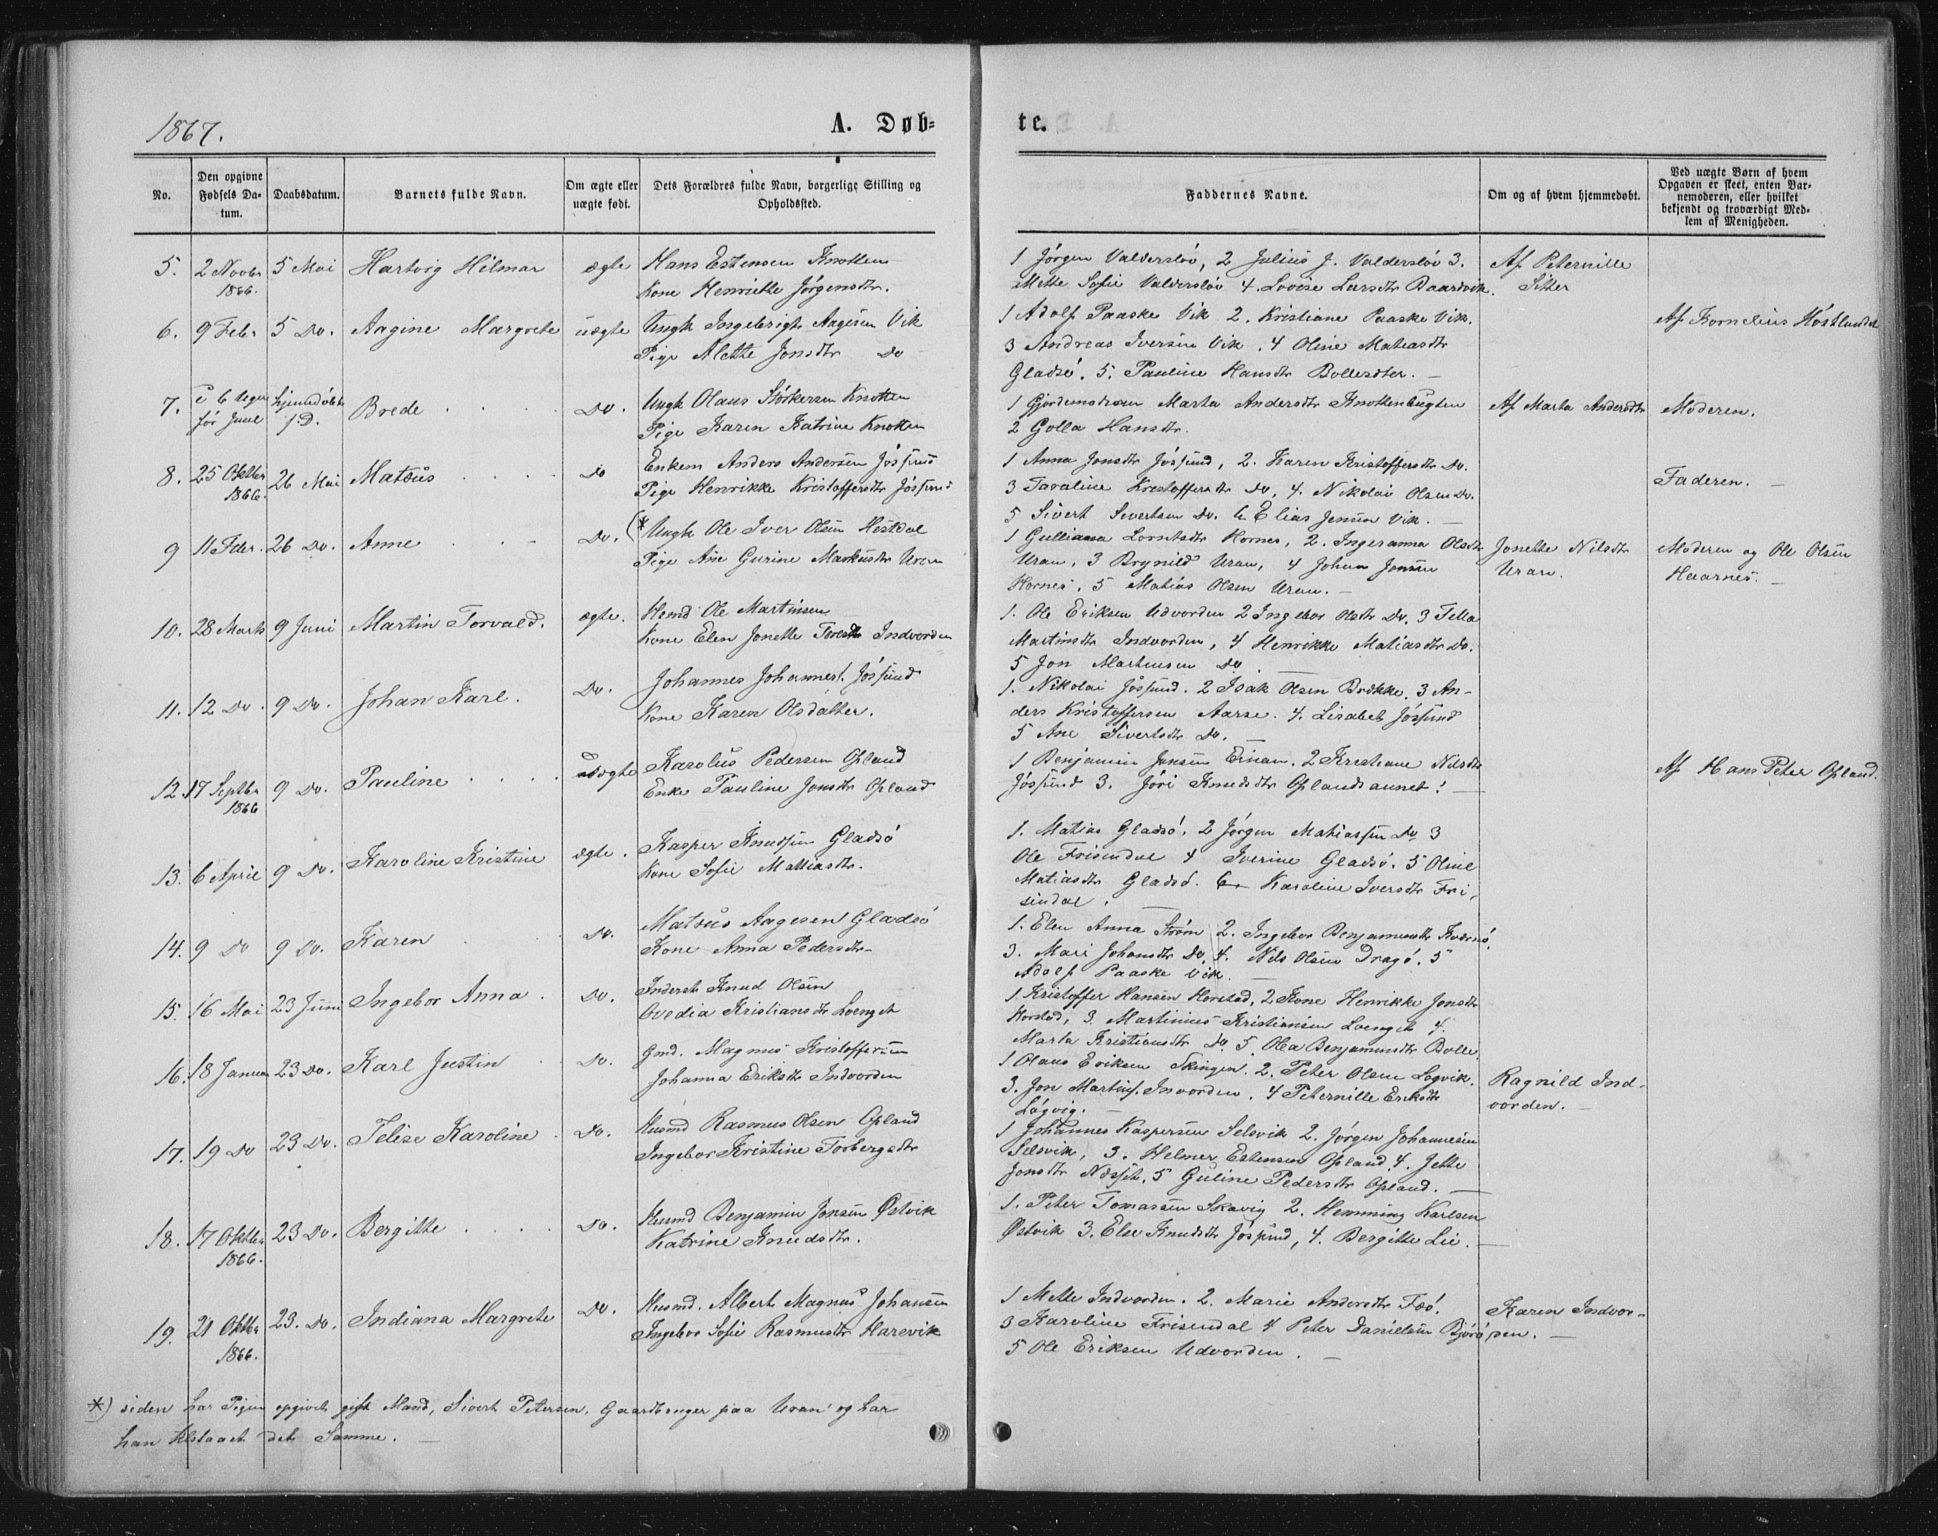 1867.
A. Døb-
te.
No.
Den opgivne Fødsels Da-tum.
Daabsdatum.
Barnets fulde Navn.
Om ægte eller uægte født.
Dets Forældres fulde Navn, borgerlige Stilling og Opholdssted.
Faddernes Navne.
Om og af hvem hjemmedøbt.
Ved uægte Børn af hvem Opgaven er skeet, enten Bar-nemoderen, eller hvilket bekjendt og troværdigt Med-lem af Menigheden.
5. 2 Novbr 5 Mai Hartvig Hilmar ægte Hans Estensen Knotten
1866. Kone Henriette Jørgensdtr.
1 Jørgen Valdersløi, 2 Julius J. Valdersløi 3.
Mette Sofie Valdersløi 4. Lovise Larsdtr Baardvik.
Af Peternille
Sitter
6. 9 Febr 5 Do. Aagine Margrete uægte Ungk Ingebrigt Aagesen Vik
Pige Alette Jonsdtr Do
1 Adolf Paaske Vik 2. Kristiane Paaske Vik.
3 Andreas Iversen Vik. 4 Oline Matiasdtr
Gladsø. 5. Pauline Hansdtr
Af Kornelius
7. i 6 Uger før Juul hjemdøbt Brede Do. Ungk Olaus Størkersen Knotten
Pige Karen Katrine Knotten
1 Gjordemoderen Marta Andersdtr Knottenbugten
2 Golla Hansdtr.
Af Marta Andersdtr
Moderen.
8. 25 Oktbr 26 Mai Matæus Do Enkem Anders Andersen Jøssund
1866. Pige Henrikke Kristoffersdtr Jøssund
1 Anna Jonsdtr Jøssund, 2. Karen Kristoffersdtr Do.
3 Taraline Kristoffersdtr Do, 4. Nikolai Olsen Do.
5 Sivert Sivertsen Do. 6 Elias Jensen Vik.
Faderen.
9 11 Febr. 26 Do. Anne Do. (* Ungk Ole Iver Olsen Hestdal
Pige Ane Gurine Markusdtr Uran
1 Gulliana Lorntsdtr Hornes, 2. Ingeranna Olsdtr
Uran, 3 Brynild Uran, 4 Johan Jonsen
Hornes, 5 Matias Olsen Uran.
Jonette Nilsdtr
Uran.
Moderen og Ole Olsen
Haarnes.
10. 28 Marts 9 Juni Martin Torvald. ægte. Hsmd Ole Martinsen
Kone Elen Jonette Indvorden
1. Ole Eriksen Udvorden 2 Ingebor Olsdtr Do. 3 Tella
Martinsdtr Indvorden, 4 Henrikke Matiasdtr Do.
5 Jon Martinsen Do
11. 12 Do. 9 Do. Johan Karl. Do. Johannes Johannesf. Jøssund
Kone Karen Olsdatter.
1. Nikolai Jøssund. 2 Isak Olsen Brække. 3 An-
ders Kristoffersen Aarse. 4. Lisabet Jøssund
5 Ane Sivertsdtr Do.
12. 17 Septbr 9 Do. Pauline uægte Karolus Pedersen Opland
1866 Enke Pauline Jonsdtr Opland
1 Benjamin Jonsen Einan. 2 Kristiane Nilsdtr
Jøssund 3. Jøri Knudsdtr Oplandsannet.
Af Hans Peter Opland.
13. 6 April 9 Do. Karoline Kristine ægte. Kasper Knudsen Gladsø
Kone Sofie Mathiasdtr.
1. Matias Gladsø. 2 Jørgen Mathiassen Do 3
Ole Frisendal 4 Iverine Gladsø. 5 Oline
Matiasdtr Gladsø. 6 Karoline Iversdtr Fri-
sendal.
14. 9 Do 9 Do. Karen Do. Matæus Aagesen Gladsø
Kone Anna Pedersdtr
1. Elen Anna Strøm 2. Ingebor Benjaminsdtr
3. Mari Johansdtr Do, 4. Nils Olsen Dragø. 5
Adolf Paaske Vik.
15. 16 Mai 23 Juni Ingebor Anna. Do. Inderst Knud Olsen
Ovedia Kristiansdtr Loenget
1 Kristoffer Hansen Horstad, 2 Kone Henrikke Jonsdtr
Horstad, 3. Martinus Kristiansen Loenget 4.
Marta Kristiansdtr Do 5. Olea Benjaminsdtr Bolle.
16. 18 Januar 23 Do. Karl Justin Do. Gmd. Magnus Kristoffersen
Johanna Eriksdtr Indvorden
1 Olaus Eriksen Skingen. 2. Peter Olsen Løgvik.
3. Jon Martinsf. Invorden. 4 Peternille Eriksdtr
Løgvig.
Ragnild Ind-
vorden.
17. 19 Do 23 Do. Felise Karoline Do. Husmd Rasmus Olsen Opland
Ingebor Kristine Torbergsdtr
1 Johannes Kaspersen Selsvik 2. Jørgen Johannesen
Selsvik, 3. Helmer Estensen Opland. 4. Jette
Jonsdtr 5 Guline Pedersdtr Opland.
18. 17 Oktbr. 23 Do. Bergitte Do. Husmd Benjamin Jonsen Østvik
1866. Katrine Knudsdtr.
1. Peter Tomassen Skavig 2. Hemming Karlsen
Østvik 3. Else Knudsdtr Jøssund, 4. Bergitte Lie.
19. 21 Oktbr 23. Do. Indiana Margrete Do. Husmd. Albert Magnus Johansen
1866. Ingebor Sofie Rasmusdtr Harevik
1 Mette Indvorden. 2. Marie Andersdtr
3 Karoline Frisendal 4 Peter Danielsen
5 Ole Eriksen Udvorden.
Karen Indvor-
den.
*) siden har Pigen opgivet gift Mand, Sivert Petersen, Gaardbruger paa Uran og har
han tilstaaet det Samme.